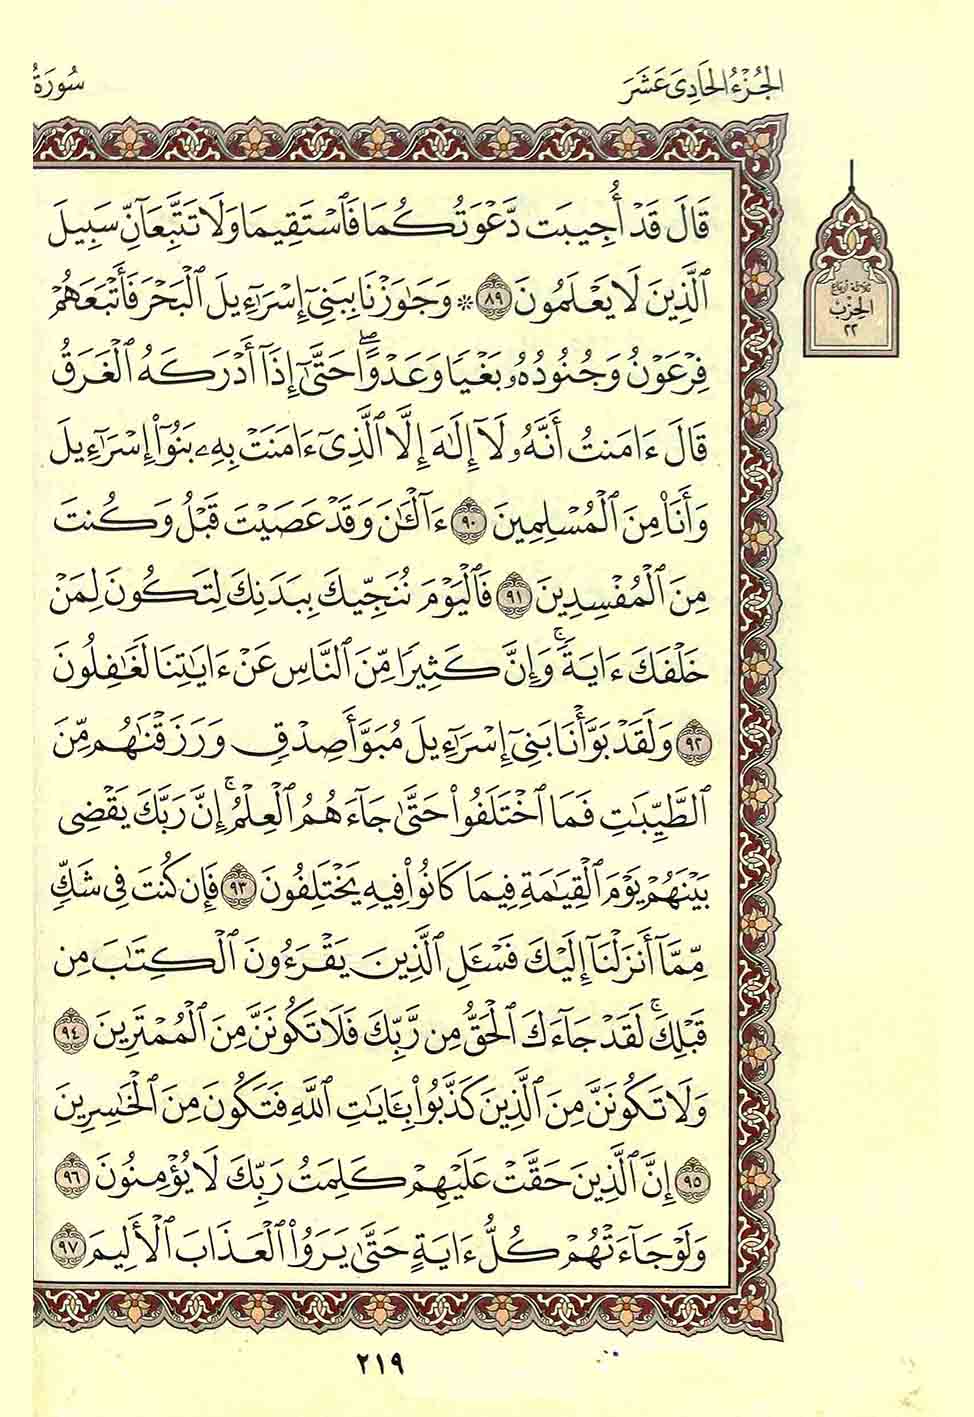 الجُزْءُ الحَادِيَ عَشَرَ
سُورَةُ
ثلاثة أرباع
الحِزْب
٢٢
قَالَ قَدۡ أُجِيبَت دَّعۡوَتُكُمَا فَٱسۡتَقِيمَا وَلَا تَتَّبِعَآنِّ سَبِيلَ
ٱلَّذِينَ لَا يَعۡلَمُونَ ٨٩ ۞ وَجَٰوَزۡنَا بِبَنِيٓ إِسۡرَٰٓءِيلَ ٱلۡبَحۡرَ فَأَتۡبَعَهُمۡ
فِرۡعَوۡنُ وَجُنُودُهُۥ بَغۡيٗا وَعَدۡوًاۖ حَتَّىٰٓ إِذَآ أَدۡرَكَهُ ٱلۡغَرَقُ
قَالَ ءَامَنتُ أَنَّهُۥ لَآ إِلَٰهَ إِلَّا ٱلَّذِيٓ ءَامَنَتۡ بِهِۦ بَنُوٓاْ إِسۡرَٰٓءِيلَ
وَأَنَا۠ مِنَ ٱلۡمُسۡلِمِينَ ٩٠ ءَآلۡـَٰٔنَ وَقَدۡ عَصَيۡتَ قَبۡلُ وَكُنتَ
مِنَ ٱلۡمُفۡسِدِينَ ٩١ فَٱلۡيَوۡمَ نُنَجِّيكَ بِبَدَنِكَ لِتَكُونَ لِمَنۡ
خَلۡفَكَ ءَايَةٗۚ وَإِنَّ كَثِيرٗا مِّنَ ٱلنَّاسِ عَنۡ ءَايَٰتِنَا لَغَٰفِلُونَ
٩٢ وَلَقَدۡ بَوَّأۡنَا بَنِيٓ إِسۡرَٰٓءِيلَ مُبَوَّأَ صِدۡقٖ وَرَزَقۡنَٰهُم مِّنَ
ٱلطَّيِّبَٰتِ فَمَا ٱخۡتَلَفُواْ حَتَّىٰ جَآءَهُمُ ٱلۡعِلۡمُۚ إِنَّ رَبَّكَ يَقۡضِي
بَيۡنَهُمۡ يَوۡمَ ٱلۡقِيَٰمَةِ فِيمَا كَانُواْ فِيهِ يَخۡتَلِفُونَ ٩٣ فَإِن كُنتَ فِي شَكّٖ
مِّمَّآ أَنزَلۡنَآ إِلَيۡكَ فَسۡـَٔلِ ٱلَّذِينَ يَقۡرَءُونَ ٱلۡكِتَٰبَ مِن
قَبۡلِكَۚ لَقَدۡ جَآءَكَ ٱلۡحَقُّ مِن رَّبِّكَ فَلَا تَكُونَنَّ مِنَ ٱلۡمُمۡتَرِينَ ٩٤
وَلَا تَكُونَنَّ مِنَ ٱلَّذِينَ كَذَّبُواْ بِـَٔايَٰتِ ٱللَّهِ فَتَكُونَ مِنَ ٱلۡخَٰسِرِينَ
٩٥ إِنَّ ٱلَّذِينَ حَقَّتۡ عَلَيۡهِمۡ كَلِمَتُ رَبِّكَ لَا يُؤۡمِنُونَ ٩٦
وَلَوۡ جَآءَتۡهُمۡ كُلُّ ءَايَةٍ حَتَّىٰ يَرَوُاْ ٱلۡعَذَابَ ٱلۡأَلِيمَ ٩٧
٢١٩